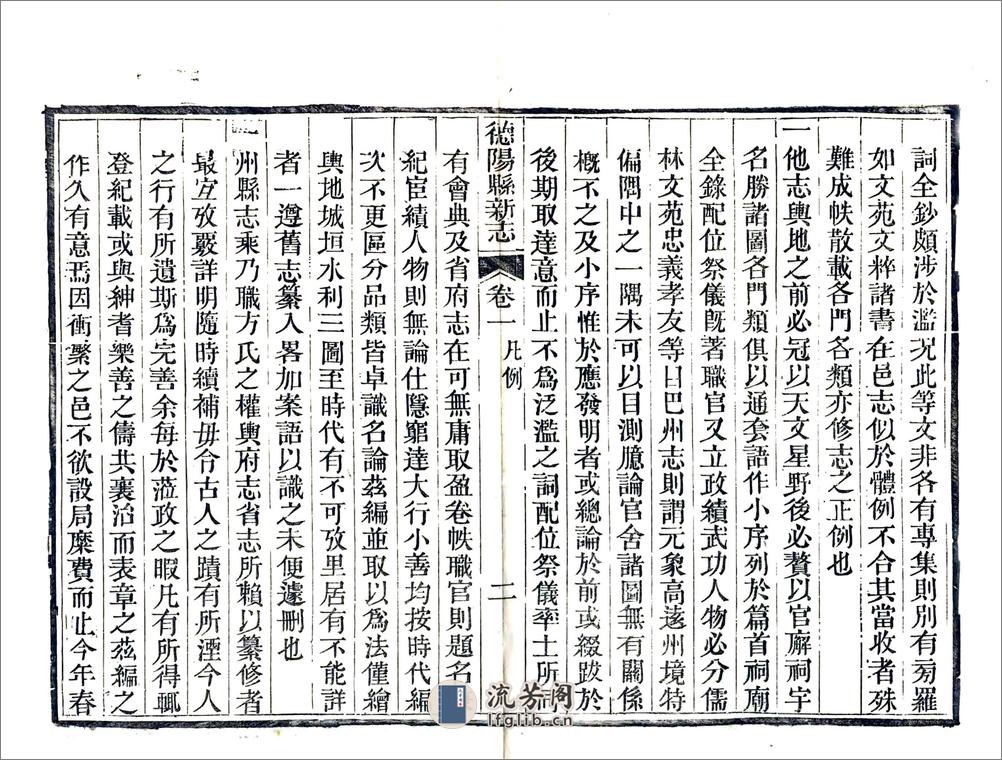 詞全鈔頗涉於濫況此等文非各有專集則別有旁羅
如文苑文粹諸書在邑志似於體例不合其當收者殊
難成帙散載各門各類亦修志之正例也
一他志輿地之前必冠以天文星野後必贅以官廨祠宇
名勝諸圖各門類俱以通套語作小序列於篇首祠廟
全錄配位祭儀旣著職官又立政績武功人物必分儒
林文苑忠義孝友等目巴州志則謂元象高遠州境特
偏隅中之一隅未可以目測臆論官舍諸圖無有關係
槪不之及小序惟於應發明者或總論於前或綴跋於
後期取達意而止不爲泛濫之詞配位祭儀率土所同
德陽縣新志 卷一 凡例 二
有會典及省府志在可無庸取盈卷帙職官則題名
紀宦績人物則無論仕隱窮達大行小善均按時代編
次不更區分品類皆卓識名論茲編並取以爲法僅繪
輿地城垣水利三圖至時代有不可攷里居有不能詳
者一遵舊志纂入畧加案語以識之未便遽刪也
一州縣志乘乃職方氏之權輿府志省志所賴以纂修者
最宜攷覈詳明隨時續補毋令古人之蹟有所湮今人
之行有所遺斯爲完善余每於蒞政之暇凡有所得輒
登紀載或與紳耆樂善之儔共襄治而表章之茲編之
作久有意焉因衝繁之邑不欲設局糜費而止今年春
流芳阁
lfglib.cn